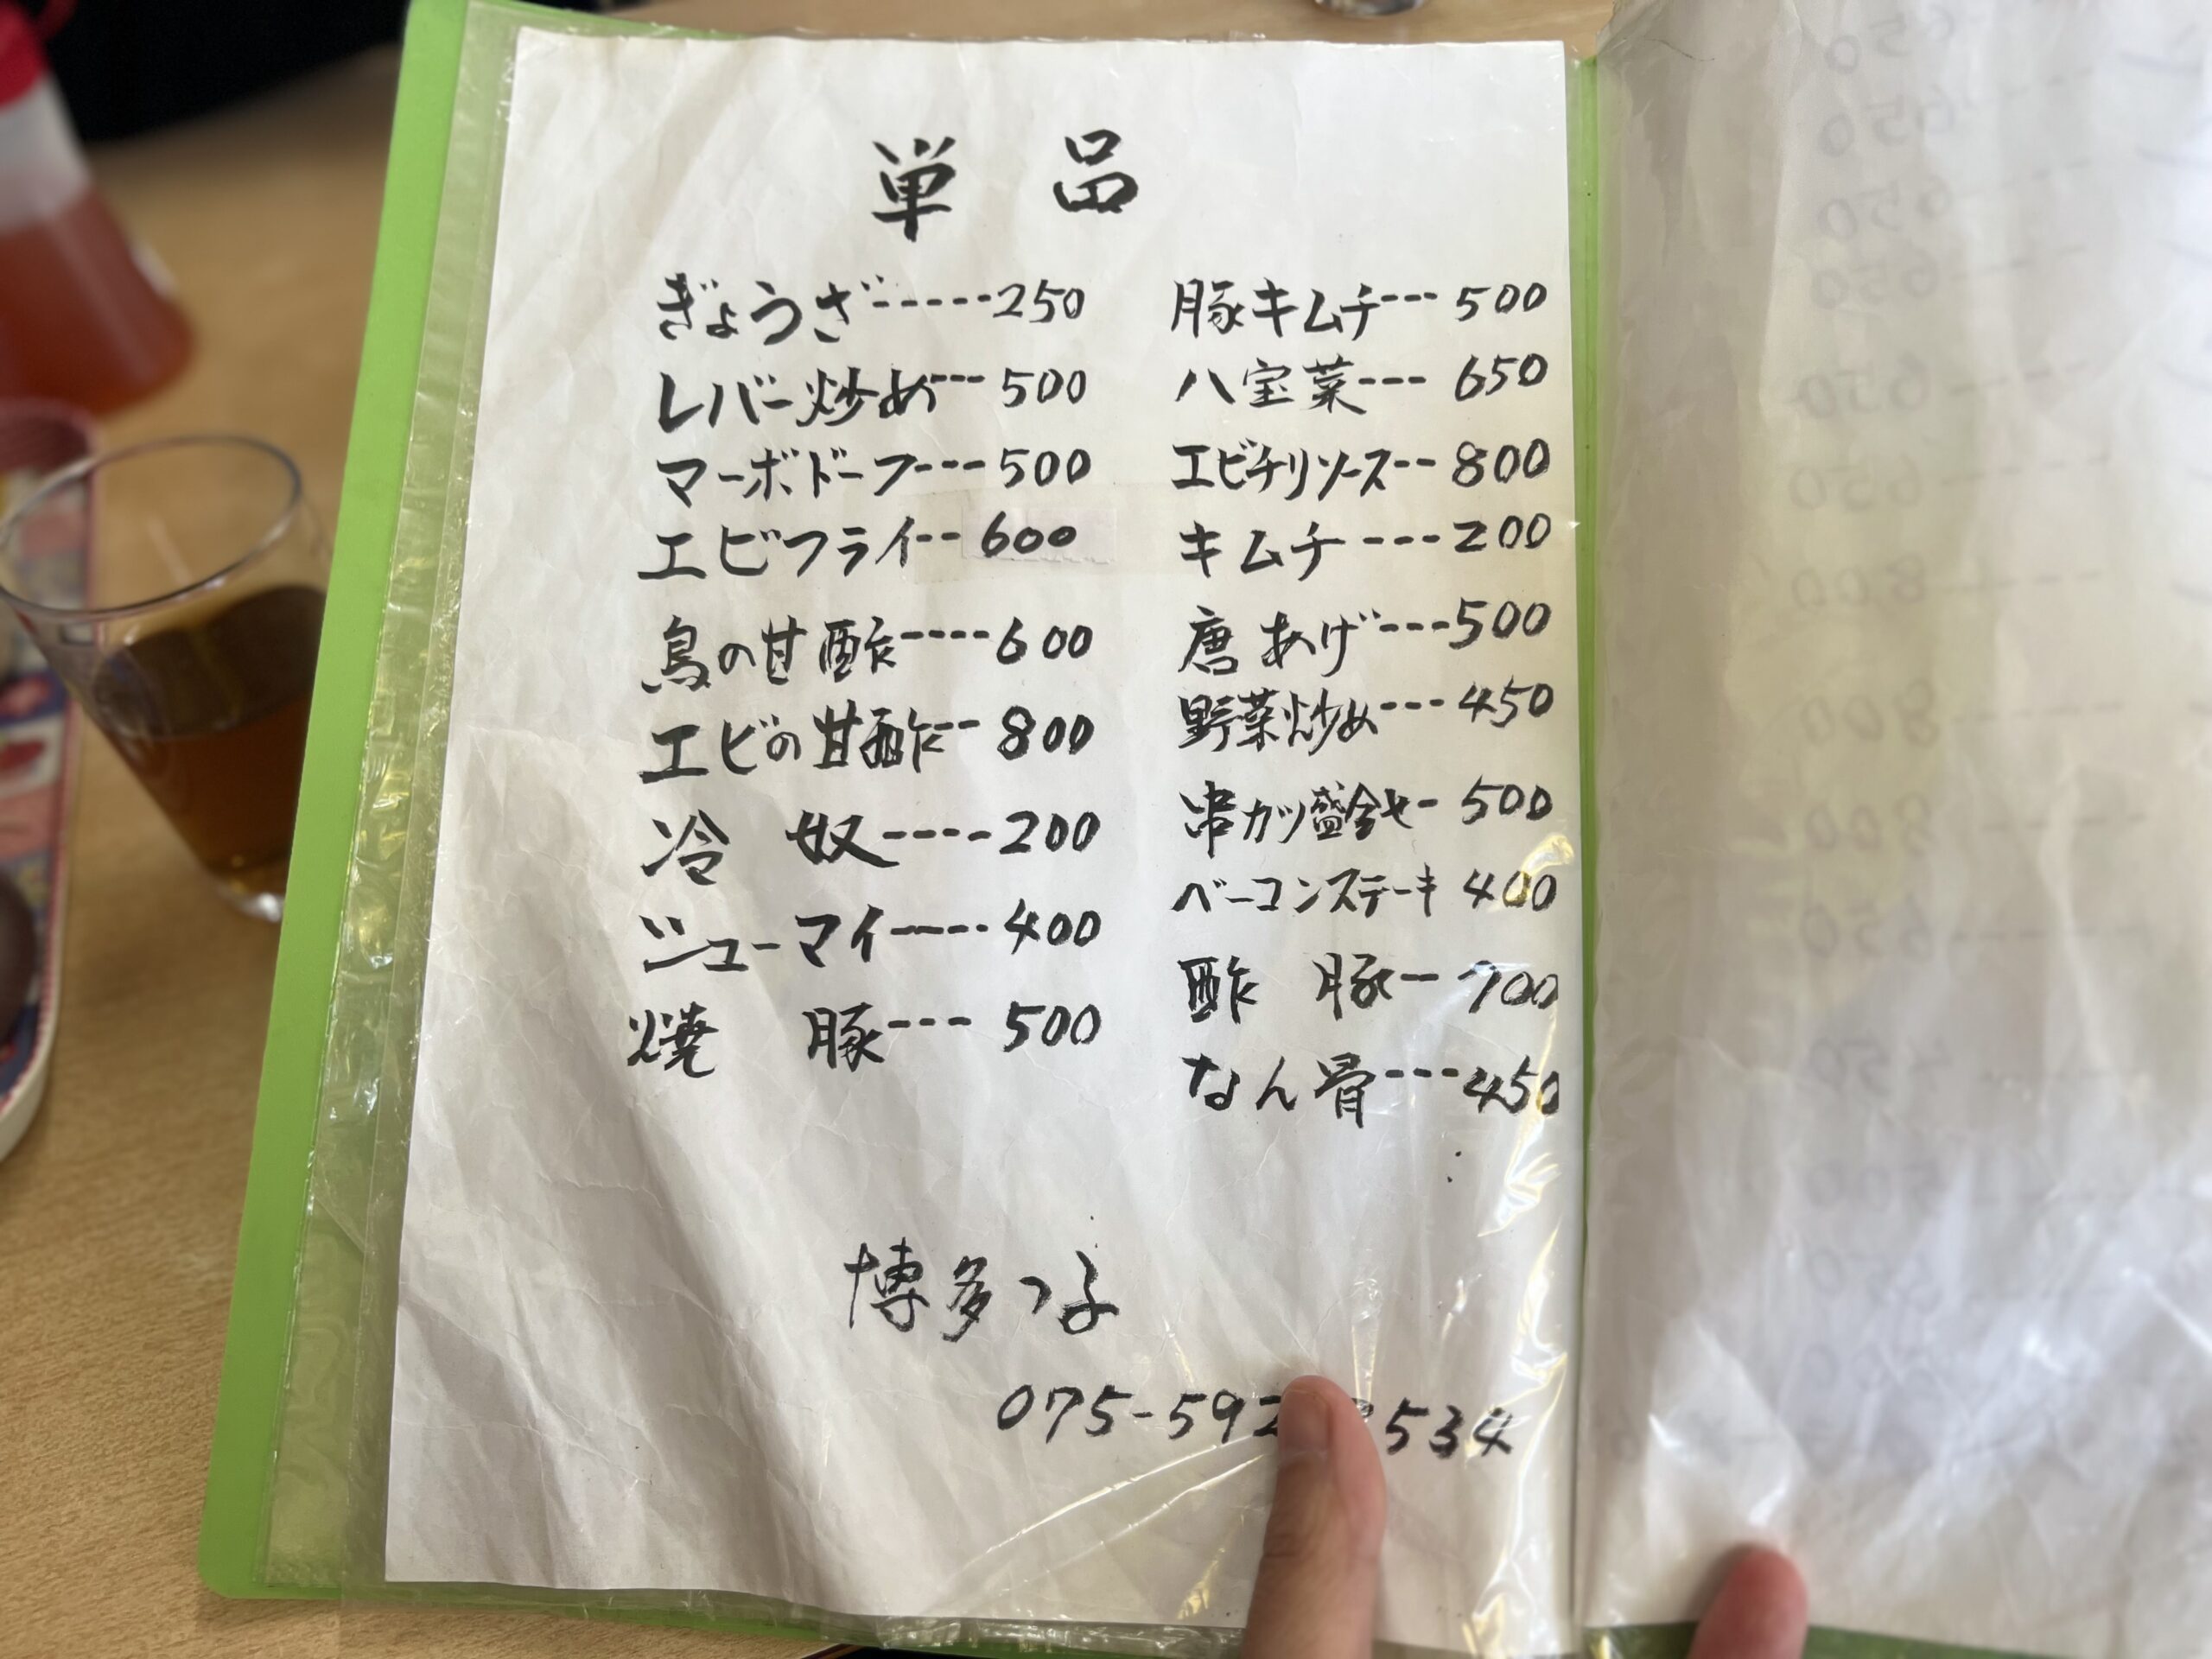 単品
ぎょうざ-----250
レバー炒め---500
マーボドーフ---500
エビフライ--600
鳥の甘酢----600
エビの甘酢--800
冷 奴----200
シューマイ----400
焼 豚---500
豚キムチ---500
八宝菜---650
エビチリソース--800
キムチ---200
唐あげ---500
野菜炒め---450
串カツ盛合せ-500
ベーコンステーキ 400
酢 豚-700
なん骨---450
博多っ子
075-592 534